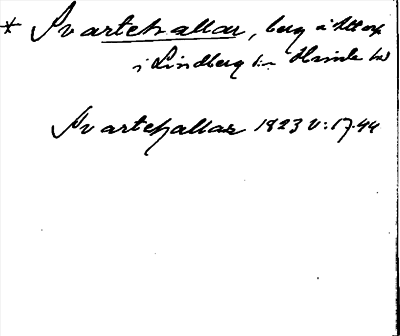 * Svartehallar, berg i
i Lindberg sn Himle hd
Svartehallar 1823 V: 17.44